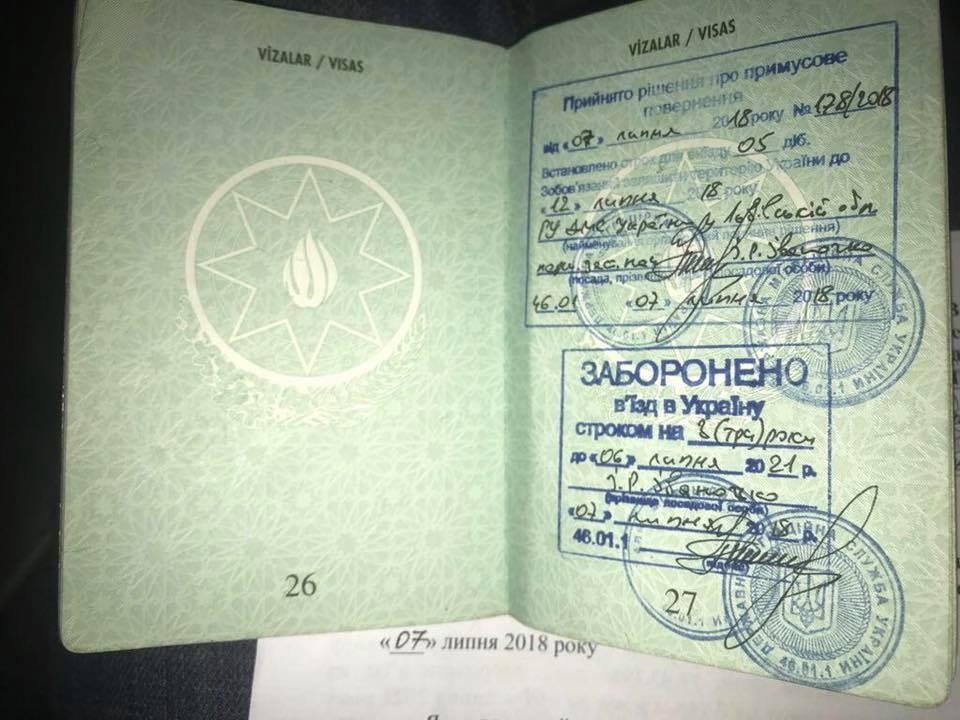 VİZALAR / VISAS
26
VİZALAR / VISAS
Прийнято рішення про примусове
повернення
від «07» липня 2018 року № 178/2018
Встановлено строк для виїзду 05 діб.
Зобов'язаний залишити територію України до
«12» липня 2018 року
ГУ ДМС України у Львівській обл
(найменування
І.Р. Іваночко
(посада, прізвище посадової особи)
46.01 «07» липня 2018 року
ЗАБОРОНЕНО
в'їзд в Україну
строком на 3 (три) роки
до «06» липня 2021 р.
І.Р. Іваночко
(прізвище посадової особи)
«07» липня 2018 р.
46.01.1
(підпис)
27
ДЕРЖАВНА МІГРАЦІЙНА СЛУЖБА УКРАЇНИ
46.01.1
«07» липня 2018 року